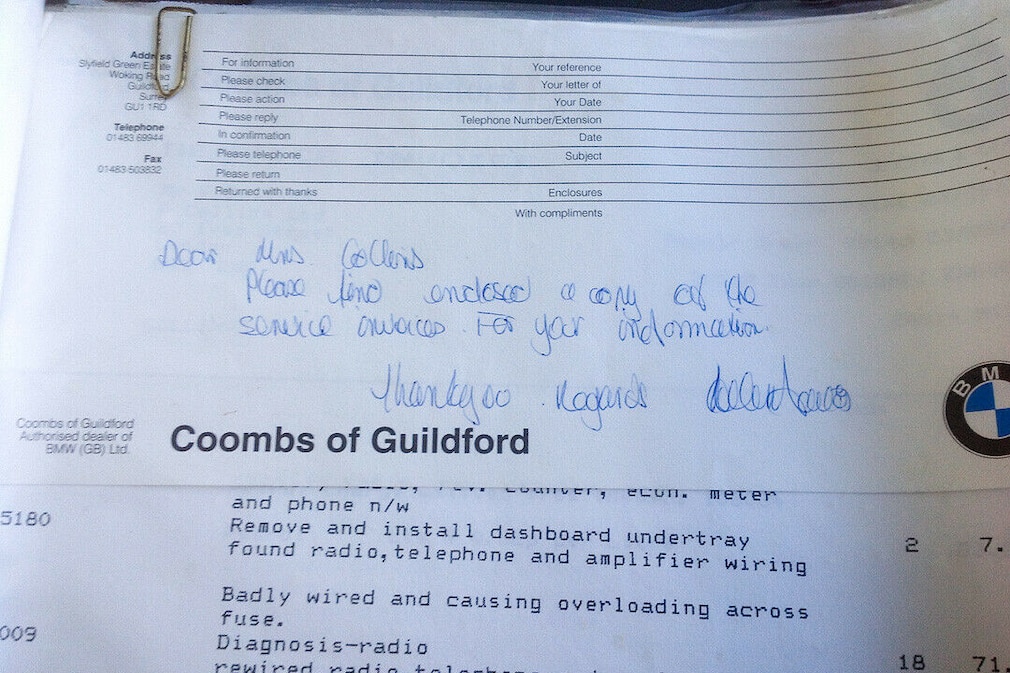 Address
Slyfield Green Estate
Woking Road
Guildford
Surrey
GU1 1RD
Telephone
01483 69944
Fax
01483 503832
For information
Please check
Please action
Please reply
In confirmation
Please telephone
Please return
Returned with thanks
Your reference
Your letter of
Your Date
Telephone Number/Extension
Date
Subject
Enclosures
With compliments
Dear Mrs Collins
Please find enclosed a copy of the
service invoices. For your information.
Thankyou. Regards
Coombs of Guildford
Authorised dealer of
BMW (GB) Ltd.
Coombs of Guildford
BM
radio, rev. counter, econ. meter
and phone n/w
5180 Remove and install dashboard undertray 2 7.
found radio,telephone and amplifier wiring
Badly wired and causing overloading across
fuse.
009 Diagnosis-radio 18 71.
rewired radio telephone